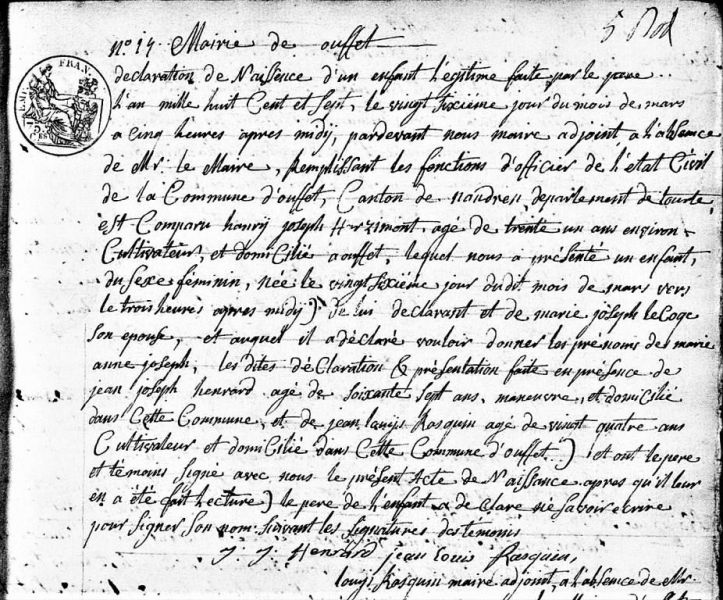 5 Rod
n.o 14 Mairie de ouffet
FRAN.
declaration de Naissence d'un enfant légitime faite par le pere
l'an mille huit Cent et Sept, le vingt Sixieme jour du mois de mars
a cinq heures apres midij, pardevant nous maire adjoint a l'absence
de Mr. le Maire, Remplissant les fonctions d'officier de l'etat Civil
de la Commune d'ouffet, Canton de nandren, departement de l'ourte,
est Comparu hanrij joseph agé de trente un ans environ
Cultivateur, et domicilié a ouffet, lequel nous a présenté un enfant,
du Sexe féminin, née le vingt Sixieme jour dudit mois de mars vers
le trois heures apres midij) De lui declarant et de marie joseph le Coge
Son epouse, et auquel il a déclaré vouloir donner les prénoms de marie
anne joseph, les dites déClaration & présentation faite en présence de
jean joseph henrard agé de Soixante Sept ans, maneuvre, et domicilié
dans Cette Commune, et de jean louijs Rasquin agé de vingt quatre ans
Cultivateur et domicilié dans Cette Commune d'ouffet) et ont le pere
et témoins Signé avec nous le présent Acte de Naissance apres qu'il leur
en a été fait lecture) le pere de l'enfant a de Clare ne Savoir ecrire
pour Signer Son nom Suivant les Signatures des témoins
J J Henrard jean louis Rasquin,
louijs Rasquin maire adjoint, a l'absence de Mr.